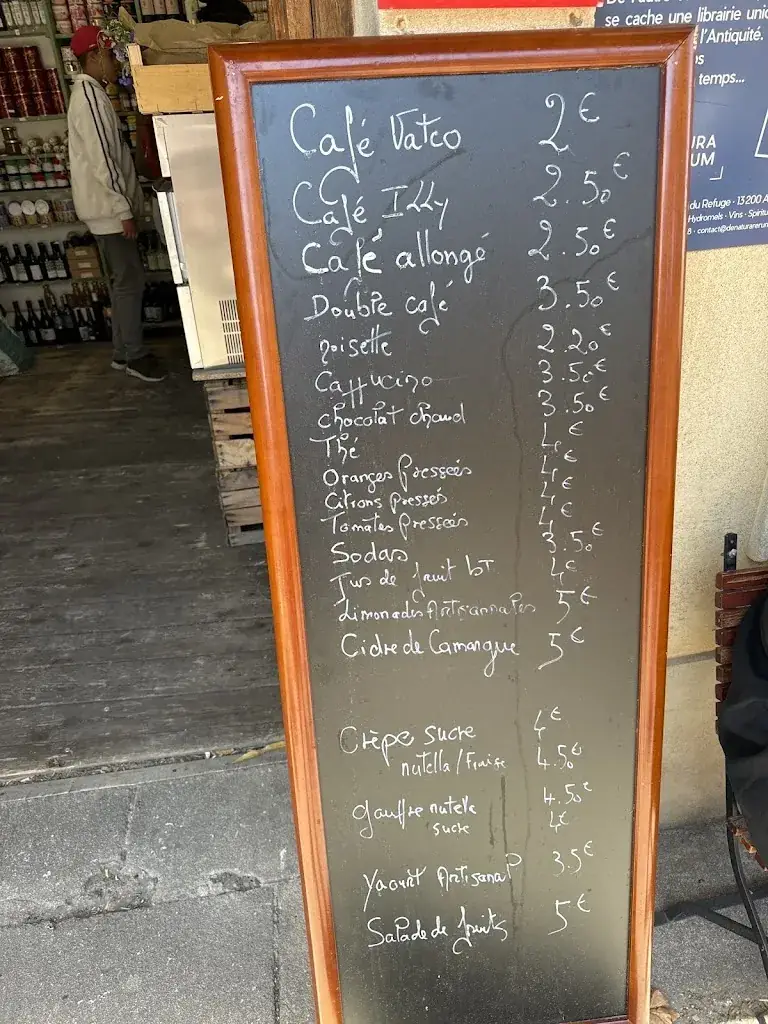 De l'
se cache une librairie uni
l'Antiquité.
temps...
URA
UM
du Refuge • 13200 A
Hydromels • Vins • Spiritu
8 • contact@denaturarerum
Café Vatco 2€
Café Illy 2.50€
Café allongé 2.50€
Double café 3.50€
noisette 2.20€
Cappucino 3.50€
chocolat chaud 3.50€
Thé 4€
Oranges Pressées 4€
Citrons Pressés 4€
Tomates Pressées 4€
Sodas 3.50€
Jus de fruit bT 4€
Limonades Artisannales 5€
Cidre de Camargue 5€
Crèpe sucre 4€
nutella/Fraise 4.50€
gauffre nutella 4.50€
sucre 4€
Yaourt Artisanal 3.5€
Salade de fruits 5€